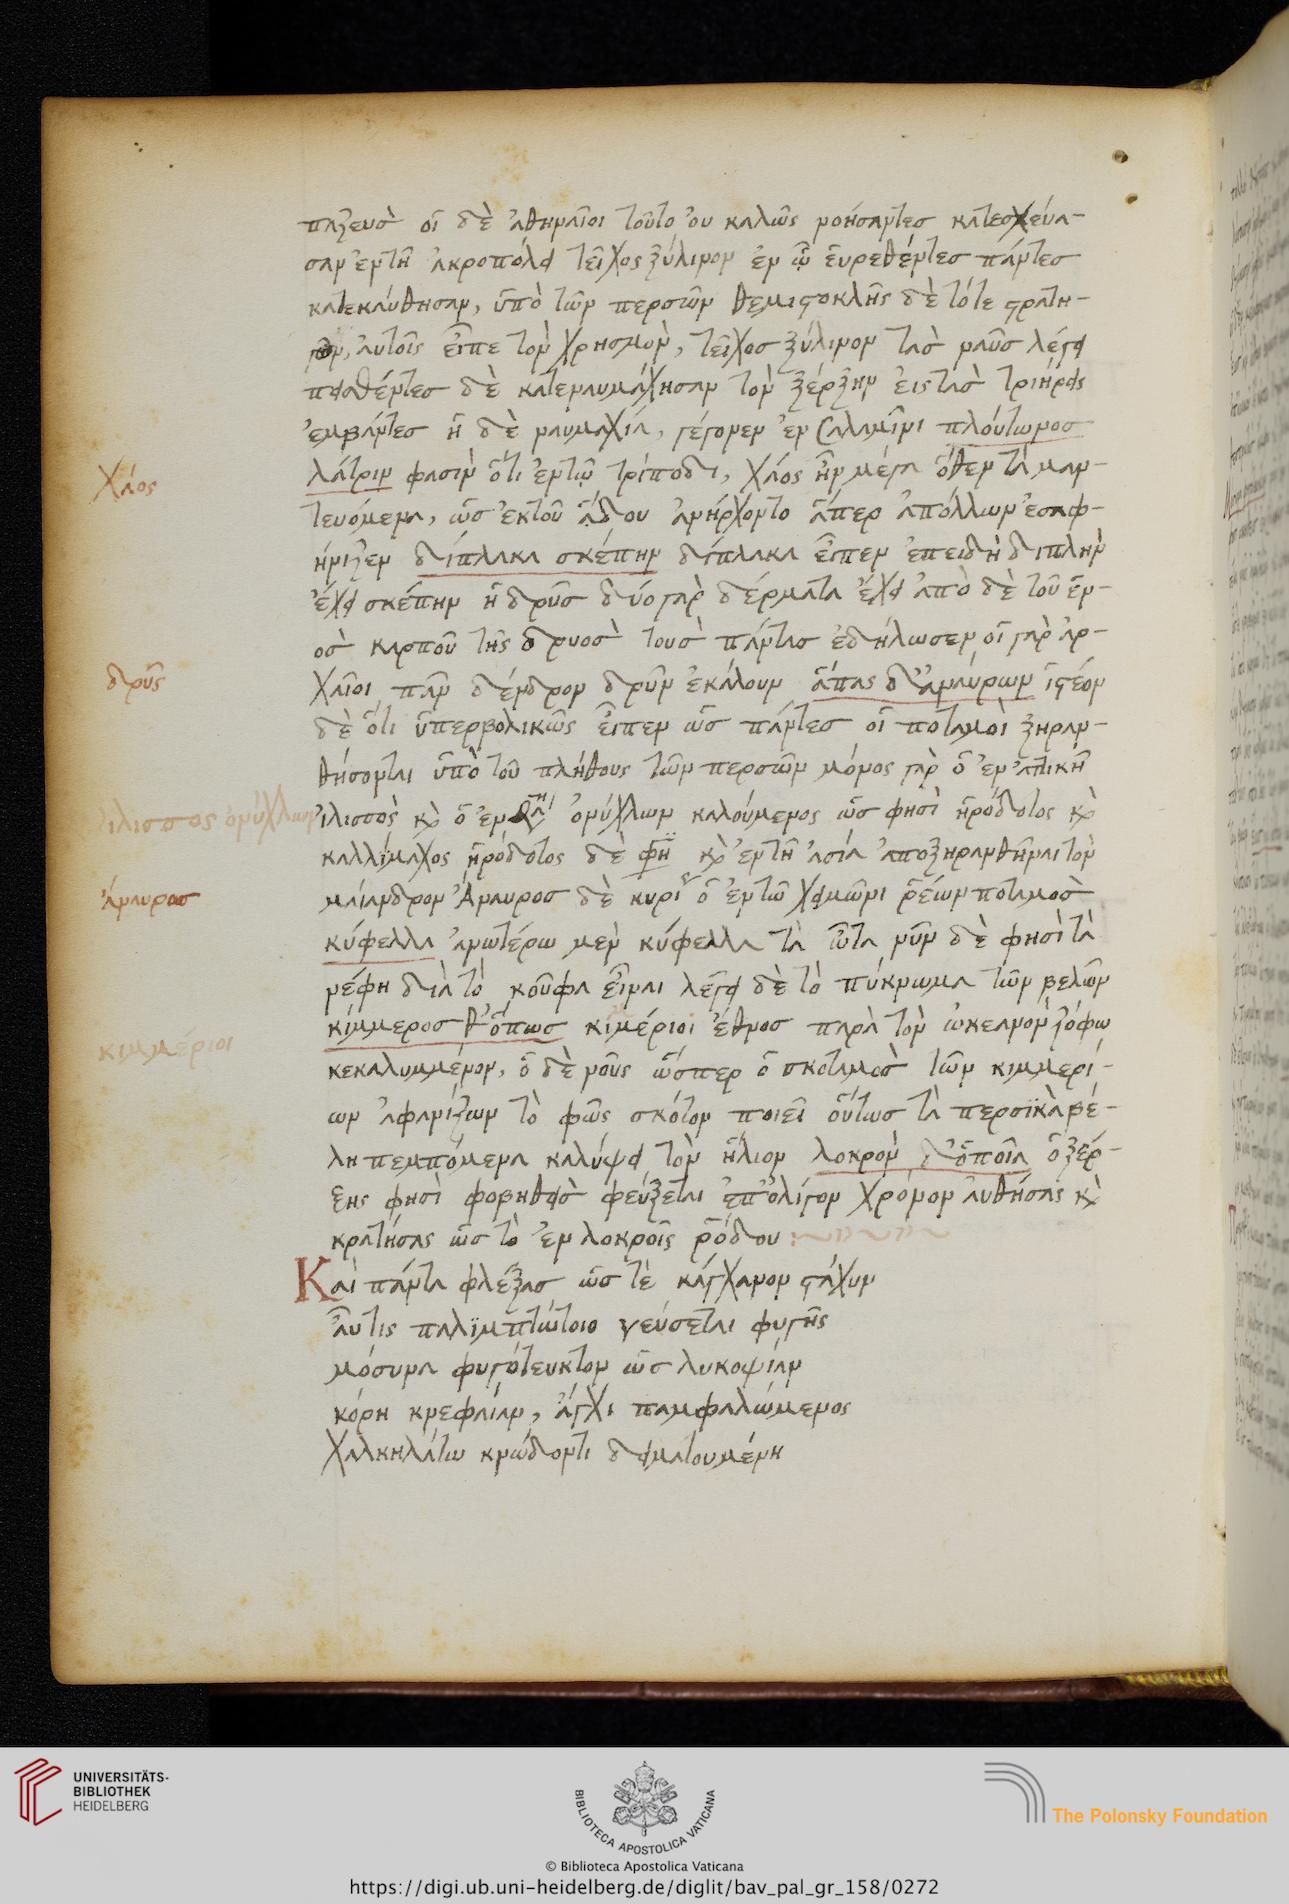 πλξευσ οἱ δὲ ἀθηναῖοι τοῦτο ὀυ καλῶς νοήσαντεσ κατεσχεύα-
σαν ἐν τῇ ἀκροπόλει τεῖχος ξύλινον ἐν ᾧ εὑρεθέντεσ πάντεσ
κατεκαύθησαν, ὑπὸ τῶν περσῶν θεμιστοκλῆς δὲ τότε στρατη-
γῶν, αὐτοῖς εἶπε τὸν χρησμὸν, τεῖχοσ ξύλινον τὰσ ναῦσ λέγει
πεισθέντεσ δὲ κατεναυμάχησαν τὸν ξέρξην εἰς τὰσ τριήρεις
ἐμβάντεσ ἡ δὲ ναυμαχία, γέγονεν ἐν Σαλαμῖνι πλούτωνοσ
Χάος
λάτριν φασὶν ὅτι ἐν τῷ τρίποδι, χάος ἦν μέγα ὅθεν τὰ μαν-
τευόμενα, ὡσ ἐκ τοῦ ᾅδου ἀνήρχοντο ἅπερ ἀπόλλων ἐσαφ-
ήνιζεν δίπλακα σκέπην δίπλακα εἶπεν ἐπειδὴ διπλὴν
ἔχει σκέπην ἡ δρῦσ δύο γὰρ δέρματα ἔχει ἀπὸ δὲ τοῦ ἑν-
οσ καρποῦ τῆς δρυοσ τουσ πάντασ ἐδήλωσεν οἱ γὰρ ἀρ-
δρῦς
χαῖοι πᾶν δένδρον δρῦν ἐκάλουν ἅπας δ' ἀναύρων ἰστέον
δὲ ὅτι ὑπερβολικῶς εἶπεν ὡσ πάντεσ οἱ ποταμοὶ ξηραν-
θήσονται ὑπὸ τοῦ πλήθους τῶν περσῶν μόνος γὰρ ὁ ἐν ἀττικῇ
ἰλισσος ὀνύχλων
ἰλισσοσ κὶ ὁ ἐν ὀνύχλων καλούμενος ὥσ φησὶ ἡρόδοτος κὶ
καλλίμαχος ἡρόδοτος δὲ φη κὶ ἐν τῇ ἀσία ἀποξηρανθῆναι τὸν
ἄναυροσ
μαίανδρον Ἄναυροσ δὲ κυρί ὁ ἐν τῶ χειμῶνι ῥέων ποταμοσ
κύφελλα ἀνωτέρω μεν κύφελλα τὰ ὦτα νῦν δὲ φησὶ τὰ
νέφη διὰ τὸ κοῦφα εἶναι λέγει δὲ τὸ πύκνωμα τῶν βελῶν
κίμμεροσ θ' ὅπωσ κιμέριοι ἔθνοσ παρὰ τὸν ὠκεανὸν ζόφω
κιμμέριοι
κεκαλυμμένον, ὁ δὲ νοῦς ὥσπερ ὁ σκοταμοσ τῶν κιμμερί-
ων ἀφανίζων τὸ φῶς σκότον ποιεῖ οὕτωσ τὰ περσϊκὰ βέ-
λη πεμπόμενα καλύψει τὸν ἥλιον λοκρὸν δ' ὁποῖα ὁ ξέρ-
ξης φησὶ φοβηθεὶσ φεύξεται ἐπ' ὀλίγον χρόνον ἀυθήσας κὶ
κρατήσας ὡσ τὸ ἐν λοκροῖς ῥόδου
Καὶ πάντα φλέξασ ὡσ τὲ κάγχανον στάχυν
ἆυτις παλϊμπτώτοιο γεύσεται φυγῆς
μόσυνα φυγότευκτον ὡσ λυκοψίαν
κόρη κνεφαίαν, ἄγχι παμφαλώμενος
Χαλκηλάτω κνώδοντι δειματουμένη
UNIVERSITÄTS-
BIBLIOTHEK
HEIDELBERG
BIBLIOTECA APOSTOLICA VATICANA
The Polonsky Foundation
© Biblioteca Apostolica Vaticana
https://digi.ub.uni-heidelberg.de/diglit/bav_pal_gr_158/0272